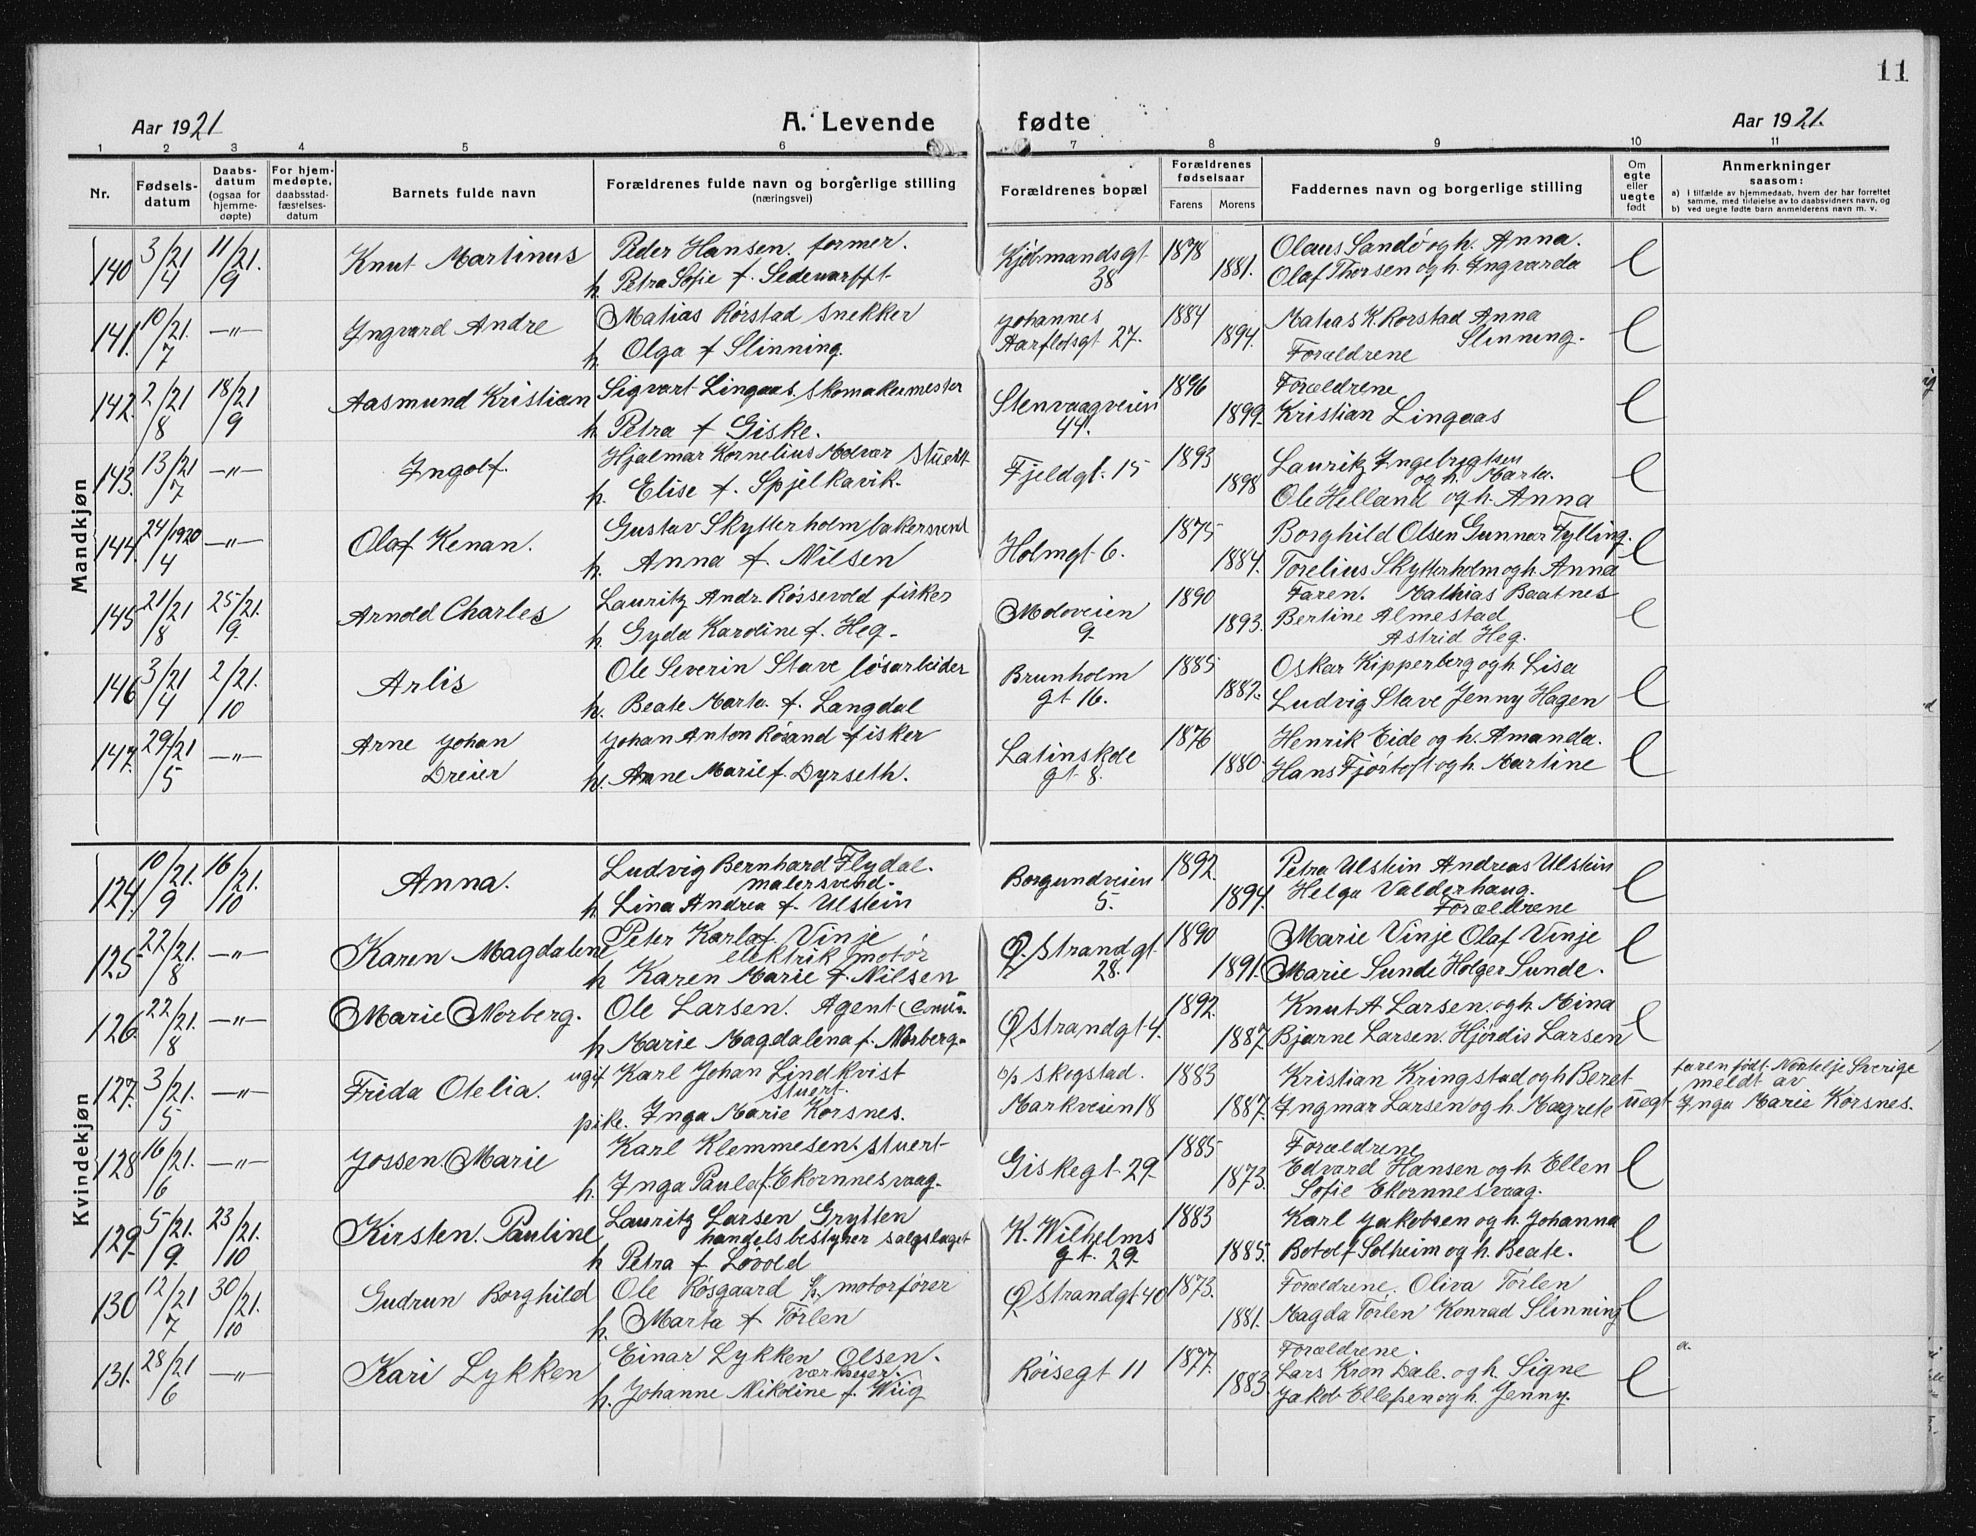 11
Aar 1921
A. Levende fødte
Aar 1921.
1 2 3 4 5 6 7 8 9 10 11
Nr.
Fødsels-
datum
Daabs-
datum
(ogsaa for
hjemme-
døpte)
For hjem-
medøpte,
daabsstad-
fæstelses-
datum
Barnets fulde navn
Forældrenes fulde navn og borgerlige stilling
(næringsvei)
Forældrenes bopæl
Forældrenes
fødselsaar
Farens Morens
Faddernes navn og borgerlige stilling
Om
egte
eller
uegte
født
Anmerkninger
saasom:
a) I tilfælde av hjemmedaab, hvem der har forrettet
samme, med tilføielse av to daabsvidners navn, og
b) ved uegte fødte barn anmelderens navn m. v.
Mandkjøn
140 3/21 4 11/21. 9 Knut Martinus Peder Hansen. former. Kjøbmandsgt 1878 Olaus Sandö og h. Anna.
h. Petra Sofie f. 38 1881. Olaf Thorsen og h. Ingvarda
141. 10/21. 7 —"— Ingvard Andre Matias Rørstad snekker Johannes 1884 Matias K. Rorstad Anna
h. Olga f Slinning. Aarflotsgt 27. 1894. Forældrene Slinning.
142. 2/21 8 18/21 9 Aasmund Kristian Sigvart Lingaas, skomakermester Stenvaagveien 1896 Forældrene
h. Petra f Giske. 44. 1899. Kristian Lingaas
143. 13/21 7 —"— Ingolf. Hjalmar Kornelius Molvær stuert Fjeldgt. 15 1893 Lauritz Ingebrigtsen
og h. Marta.
h. Elise f. Spjelkavik. 1898 Ole Helland og h. Anna
144. 24/1920 4 —"— Olaf Kenan. Gustav Skytterholm bakersvend Holmgt 6. 1875 Borghild Olsen Gunnar Fylling.
h. Anna f Nilsen 1884. Torelius Skytterholm og h. Anna
145 21/21 8 25/21. 9 Arnold Charles Lauritz Andr. Røssevold fisker Moloveien 1890 Faren. Mathias Baatnes
h. Gyda Karoline f. Heg. 9. 1893. Bertine Almestad
Astrid Heg.
146 3/21 4 2/21. 10 Arlis Ole Severin Stave løsarbeider Brunholm 1885 Oskar Kipperberg og h Lisa
h. Beate Marta. f. Langdal gt 16. 1887. Ludvig Stave Jenny Hagen
147. 29/21 5 —"— Arne Johan Johan Anton Røsand fisker Latinskole 1876 Henrik Eide og h. Amanda.
Dreier h. Anne Marie f. Dyrseth. gt. 8. 1880. Hans Fjørtoft og h. Martine
Kvindekjøn
124. 10/21. 9 16/21. 10 Anna. Ludvig Bernhard Flydal. Borgundveien 1892. Petra Ulstein Andreas Ulstein
malersvend. Helga Valderhaug.
h Lina Andrea f. Ulstein 5. 1894. Forældrene
125 22/21. 8 —"— Karen Magdalene Peter Karlof. Vinje Ø. Strandgt. 1890 Marie Vinje Olaf Vinje
elektrik motör
h Karen Marie f. Nilsen 28. 1891. Marie Sunde Holger Sunde.
126. 22/21. 8 —"— Marie Norberg. Ole Larsen. Agent Ø Strandgt 4. 1892. Knut A Larsen. og h. Mina
h Marie Magdalena f. Norberg. 1887. Bjarne Larsen. Hjördis Larsen
127. 3/21. 5 —"— Frida Otelia. ugif Karl Johan Lindkvist Skegstad. 1883 Kristian Kringstad og h Beret faren født. Norrtelje Sverige
stuert. meldt av
pike. Inga Marie Korsnes. Markveien 18 1887. Ingmar Larsen og h. Magrete uegt Inga Marie Korsnes.
128 16/21. 6 —"— Jossen Marie Karl Klemmesen. stuert Giskegt. 29. 1885 Forældrene
h. Inga Paula f. Ekornnesvaag. 1873. Edvard Hansen og h. Ellen
Sofie Ekornnesvaag.
129. 5/21. 9. 23/21. 10 Kirsten. Pauline Lauritz Larsen Grytten K. Wilhelms 1883 Karl Jakobsen og h. Johanna
handelsbestyrer salgslaget
h Petra f Løvold gt. 29. 1885. Botolf Solheim og h. Beate.
130 12/21 7 30/21. 10 Gudrun Borghild Ole Røsgaard motorfører Ø Strandgt 40 1873. Forældrene. Oliva Tørlen
h. Marta f Tørlen 1881. Magda Tørlen Konrad Slinning
131. 28/21 6 —"— Kari Lykken Einar Lykken Olsen. Røisegt 11 1877. Forældrene. a.
værkseier. Lars Kron Dale. og h. Signe
h. Johanne Nikoline f. Wiig 1883. Jakob Ellefsen og h. Jenny.